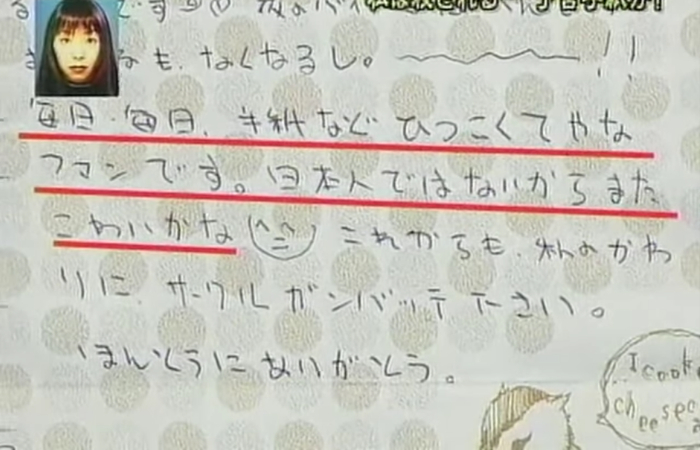 も、なくなるし。 !!
毎日、毎日、手紙など ひつこくてやな
ファンです。日本人ではないから また
こわいかな これからも、私のかわ
りに、サークル ガンバッテ下さい。
ほんとうに ありがとう。
I cook
cheese